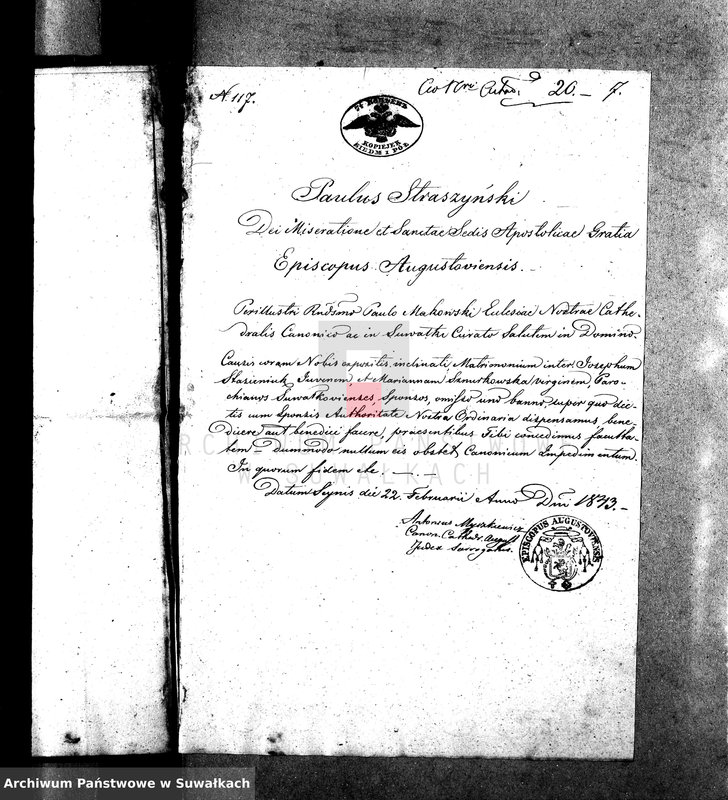 N. 117.
20. – 7.
KOPIEJEK
SIEDM I PÓŁ
Paulus Straszyński
Dei Miseratione et Sanctae Sedis Apostolicae Gratia
Episcopus Augustoviensis.
Perillustri Rndsmo Paulo Makowski Eclesiae Nostrae Cathe-
dralis Canonico ac in Suwałki Curato Salutem in Domino.
Causis coram Nobis expositis inclinati Matrimonium inter Josephum
Stasieniuk Juvenem et Mariannam Sznurkowska virginem Paro-
chianos Suwałkovienses, Sponsos, omisso uno banno super quo dic-
tis cum Sponsis Authoritate Nostra Ordinaria dispensamus bene-
dicere aut benedici facere, praesentibus Tibi concedimus faculta-
tem dummodo nullum eis obstet Canonicum Impedimentum.
In quorum fidem etc. —.—.—
Datum Seynis die 22. Februarii Anno Dni 1843.–
Antonius Myszkiewicz
Canon. Cathedr. August
Judex Surrogatus.
EPISCOPUS AUGUSTOVIENSIS
ARCHIWUM PAŃSTWOWE
W SUWAŁKACH
Archiwum Państwowe w Suwałkach